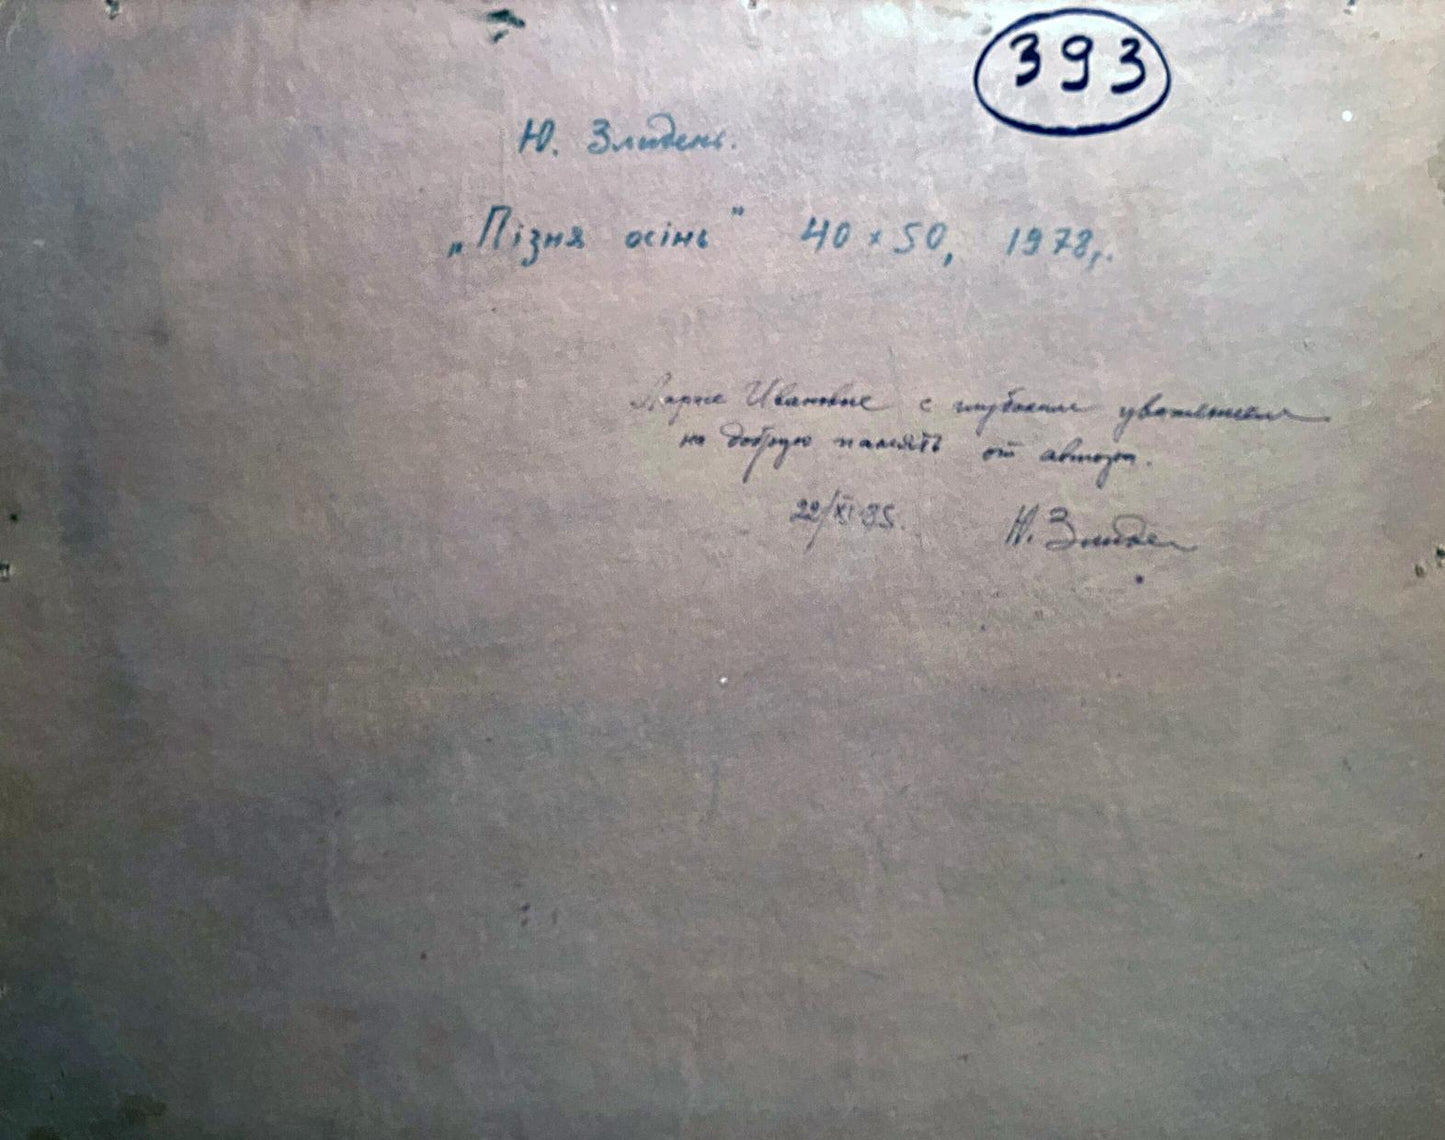 393
Ю. Злидень.
„Пізня осінь" 40 x 50, 1978 г.
Ивановне с глубоким уважением
на добрую память от автора.
22/XI-95.
Ю. Злиде